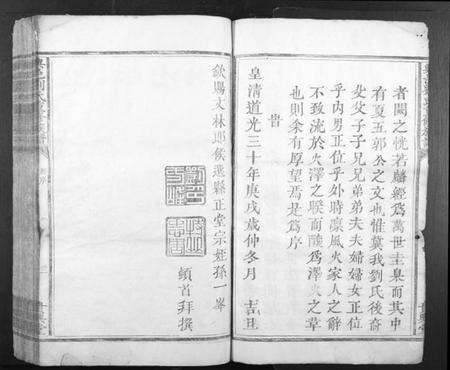 者閱之恍若麟經爲萬世圭臬而其中
有夏五郭公之文也惟冀我劉氏後裔
父父子子兄兄弟弟夫夫婦婦女正位
乎內男正位乎外時凜風火家人之辭
不致流於火澤之睽而釀爲澤火之革
也則余有厚望焉是爲序
旹
皇清道光三十年庚戌歲仲冬月 吉旦
欽賜文林郎候選縣正堂宗姪孫一峯
頓首拜撰